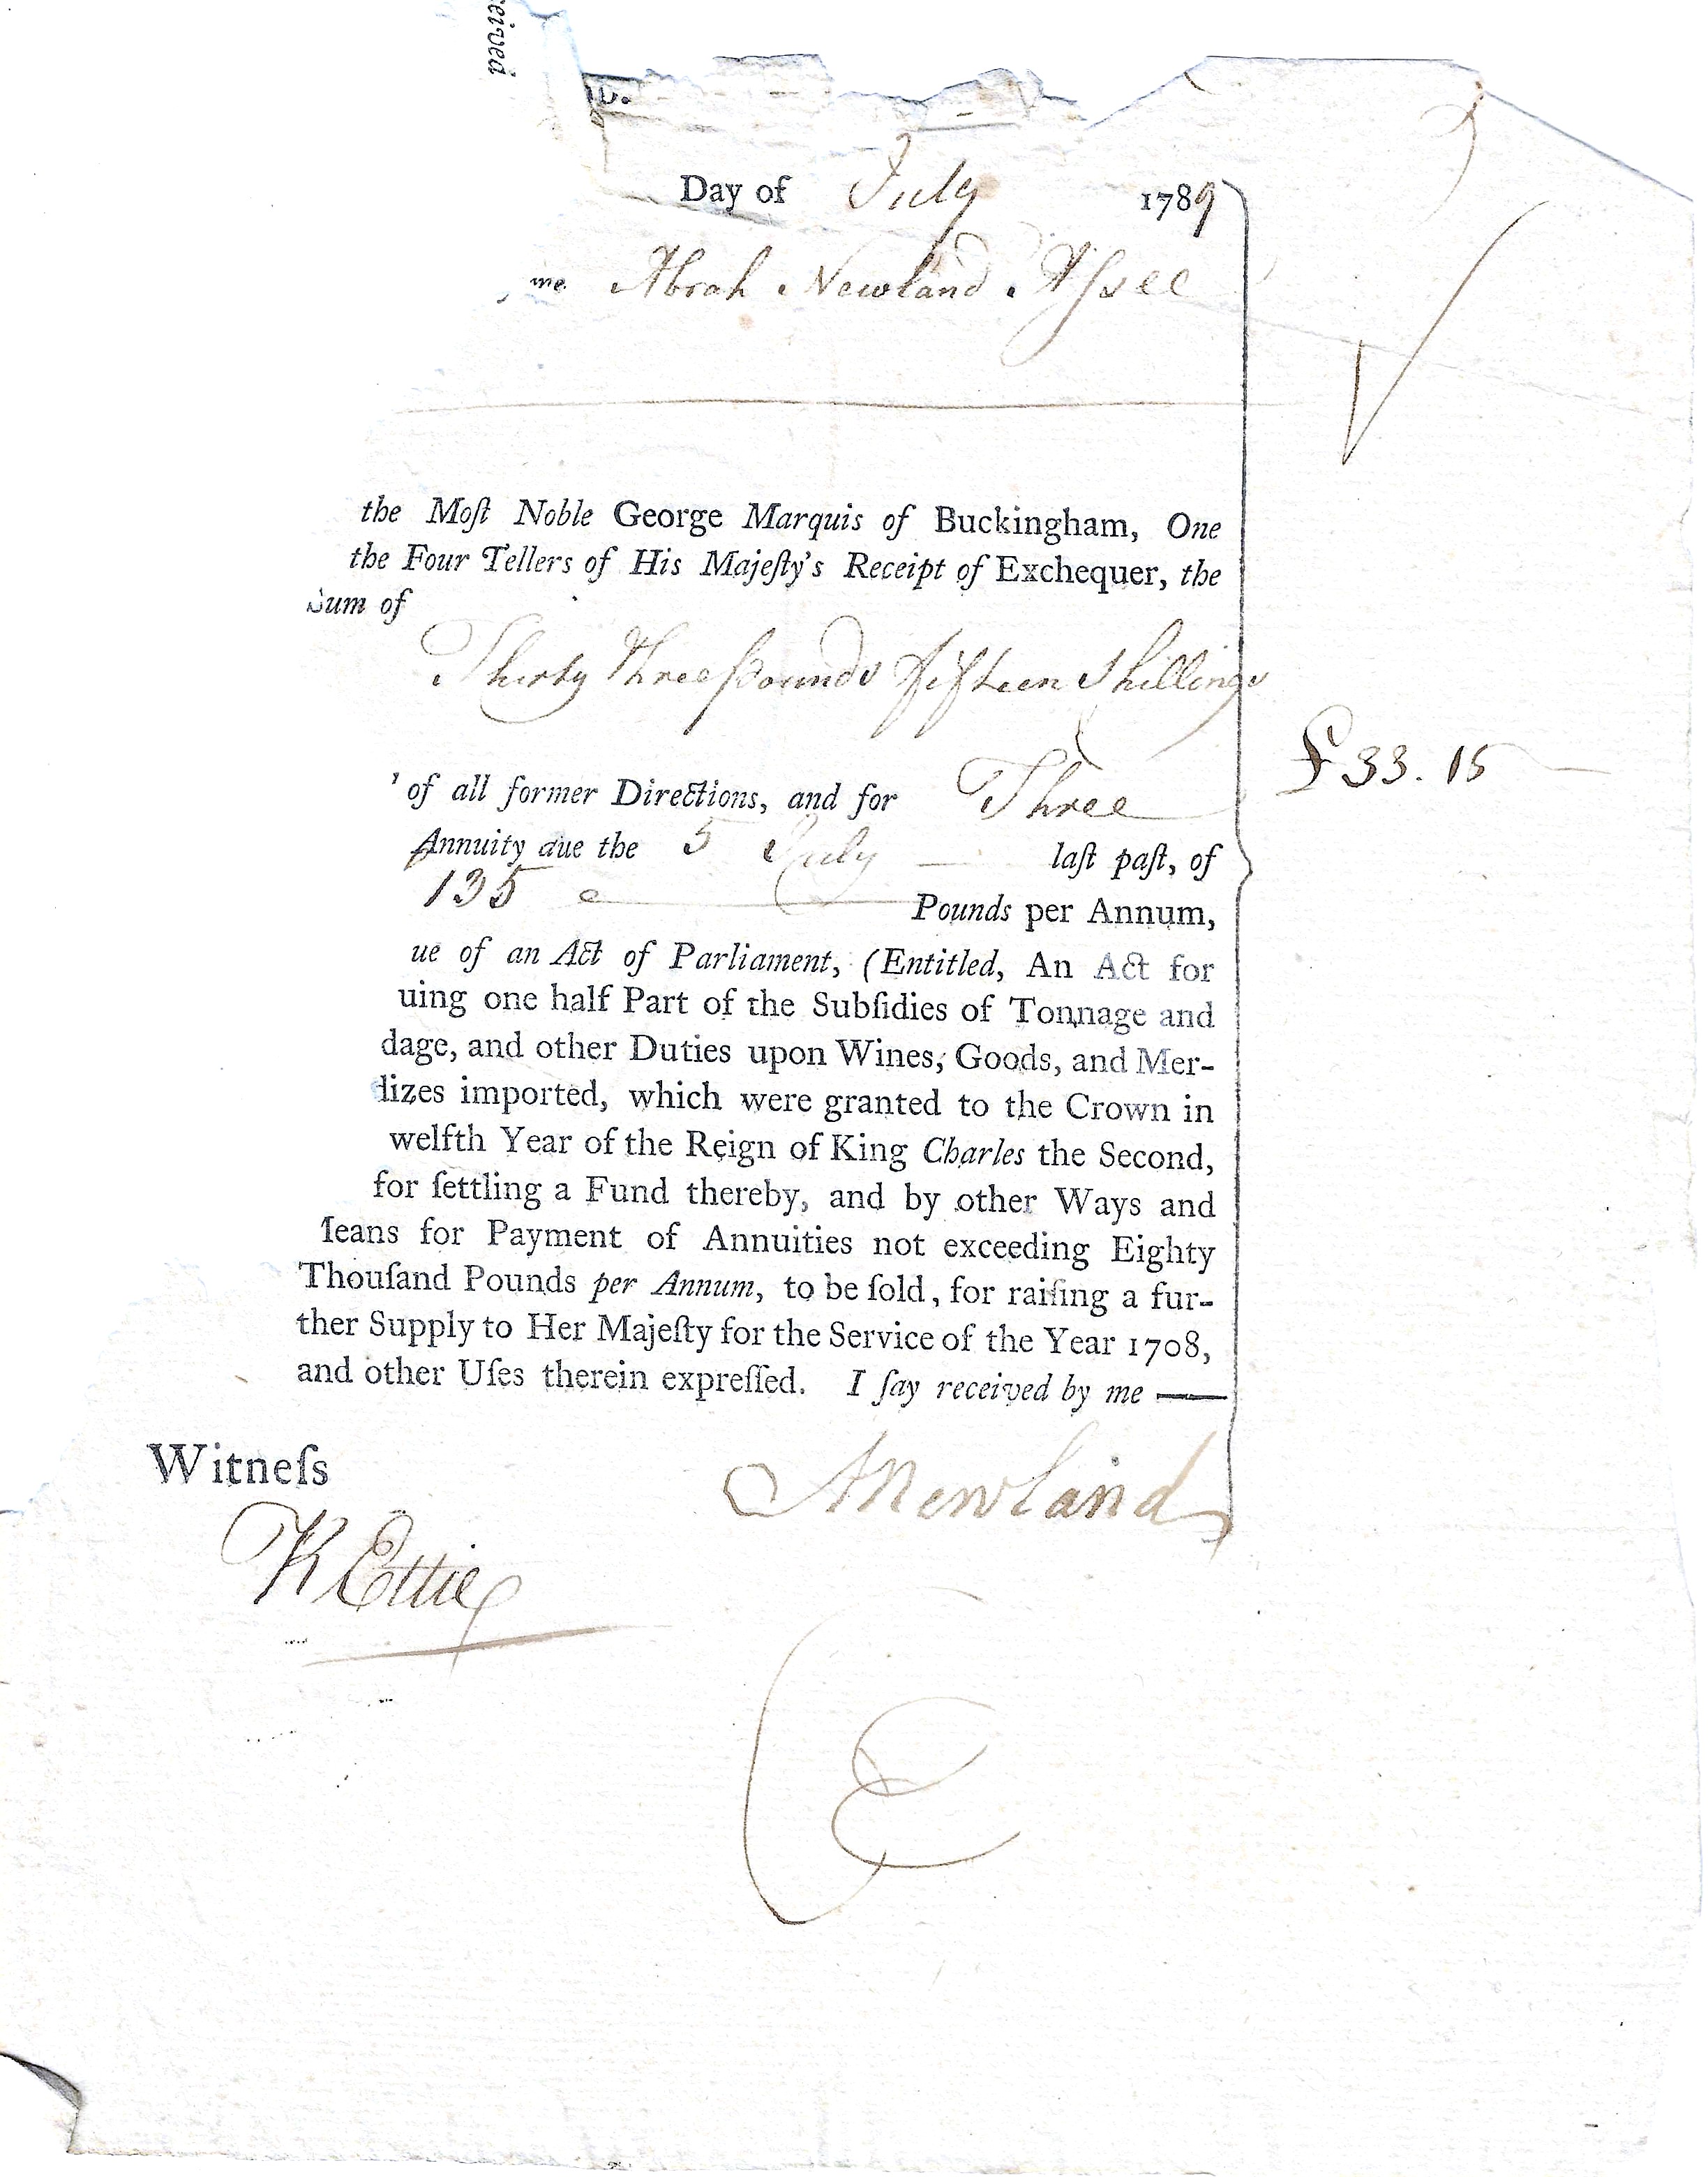 eived
Day of July 1789
me Abrah Newland Aſsee
the Moſt Noble George Marquis of Buckingham, One
the Four Tellers of His Majeſty's Receipt of Exchequer, the
Sum of
Thirty Three Pounds fifteen Shillings
£33.15
of all former Directions, and for Three
Annuity due the 5 July laſt paſt, of
135 Pounds per Annum,
ue of an Act of Parliament, (Entitled, An Act for
uing one half Part of the Subſidies of Tonnage and
dage, and other Duties upon Wines, Goods, and Mer-
dizes imported, which were granted to the Crown in
welfth Year of the Reign of King Charles the Second,
for ſettling a Fund thereby, and by other Ways and
eans for Payment of Annuities not exceeding Eighty
Thouſand Pounds per Annum, to be ſold, for raiſing a fur-
ther Supply to Her Majeſty for the Service of the Year 1708,
and other Uſes therein expreſſed. I ſay received by me —
Witneſs
ANewland
K Ettie